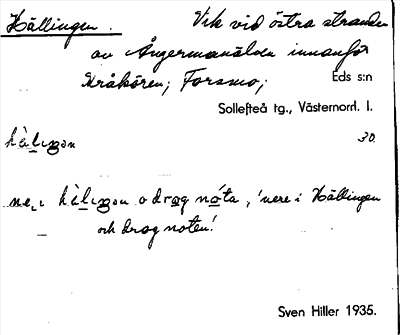 Hällingen. Vik vid östra stranden
av Ångermanälven innanför
Kråkören; Forsmo;
Eds s:n
Sollefteå tg., Västernorrl. l.
30.
ne, i hèlıŋǝn o drag nota, 'nere i Hällingen
och drag noten!'
Sven Hiller 1935.